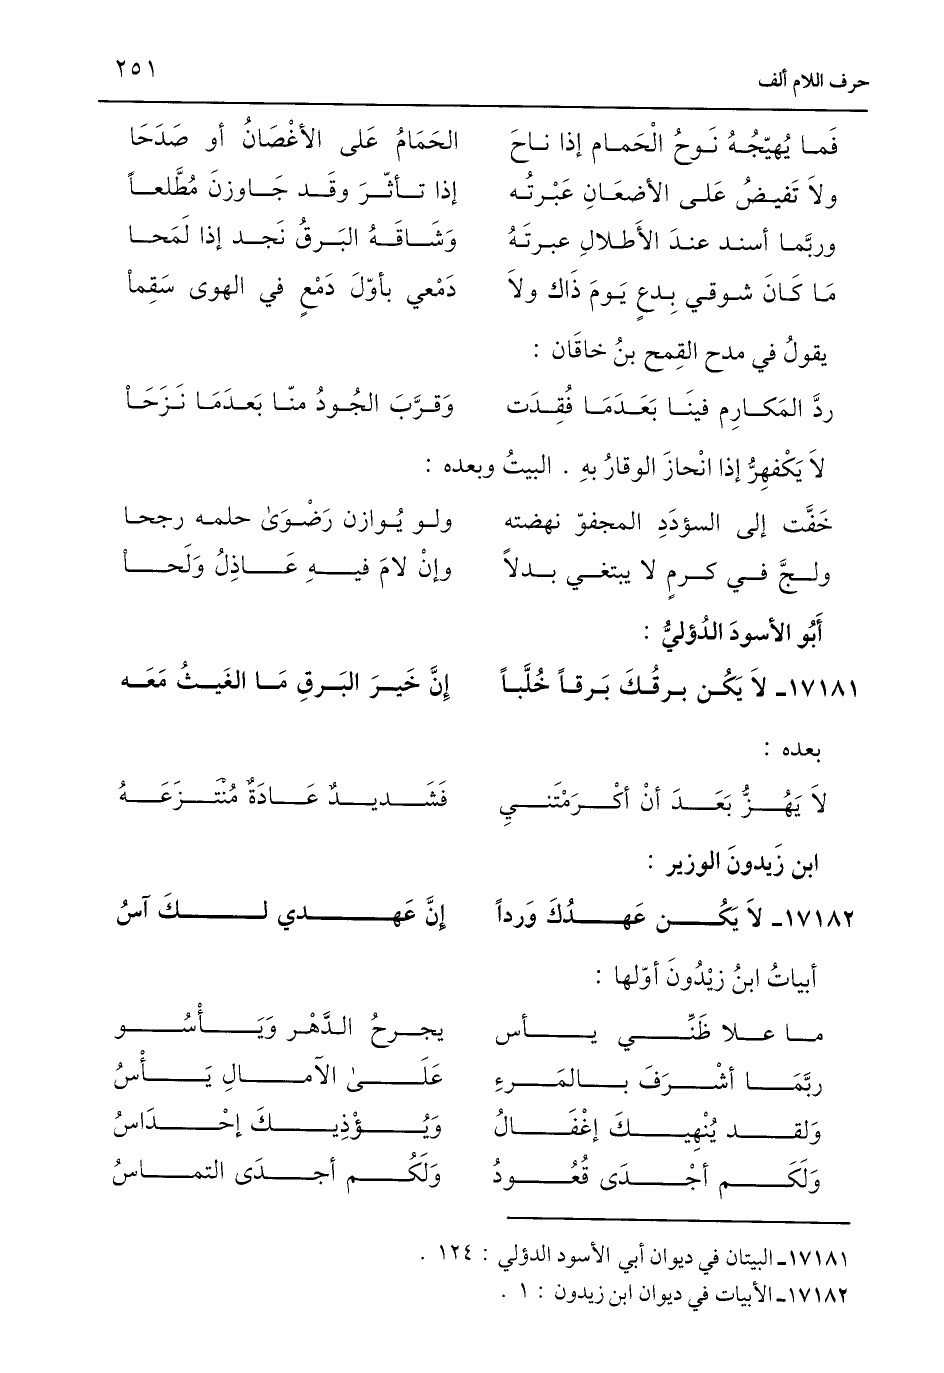 حرف اللام ألف ٢٥١
فَما يُهيّجُهُ نَوحُ الْحَمام إذا ناحَ الحَمَامُ عَلى الأغْصَانُ أو صَدَحَا
ولاَ تَفيضُ عَلى الأضعَانِ عَبْرتُه إذا تأثّرَ وقَد جَاوزنَ مُطَّلعاً
وربَّما أسند عندَ الأَطلالِ عبرتَهُ وَشَاقَهُ البَرقُ نَجد إذا لَمَحا
مَا كَانَ شوقي بِدعٍ يَومَ ذَاك ولاَ دَمْعي بأوّلَ دَمْعٍ في الهوى سَقِماْ
يقولُ في مدح القِمح بنُ خاقَان :
ردَّ المَكارِم فينَا بَعَدَمَا فُقِدَت وَقرَّبَ الجُودُ منّا بَعدَمَا نَزَحَاْ
لاَ يَكْفهِرُّ إذا انْحازَ الوقارُ بهِ . البيتُ وبعده :
خَفَّت إلى السؤدَدِ المجفوّ نهضته ولو يُوازن رَضْوَىٰ حلمه رجحا
ولجَّ في كرمٍ لا يبتغي بدلاً وإنْ لامَ فيهِ عَاذِلُ وَلَحاْ
أَبُو الأسودَ الدُؤليُّ :
١٧١٨١ـ لاَ يَكُن برقُكَ بَرقاً خُلَّباً إنَّ خَيرَ البَرقِ مَا الغَيثُ مَعَه
بعده :
لاَ يَهُزُّ بَعَدَ أنْ أكْرَمْتَنيِ فَشَديدٌ عَادَةٌ مُنْتزَعَهُ
ابن زَيدونَ الوزير :
١٧١٨٢ـ لاَ يَكُن عَهدُكَ وَرداً إنَّ عَهدي لكَ آسُ
أبياتُ ابنُ زيْدُونَ أوّلها :
ما علا ظَنِّي يأس يجرحُ الدَّهْر وَيَأْسُو
ربَّمَا أشْرَفَ بالمَرءِ عَلَىٰ الآمالِ يَأْسُ
وَلقد يُنْهِيكَ إغْفَالُ وَيُؤْذِيكَ إحْدَاسُ
وَلَكَم أجْدَى قُعُودُ وَلَكُم أجدَى التماسُ
١٧١٨١ـ البيتان في ديوان أبي الأسود الدؤلي : ١٢٤ .
١٧١٨٢ـ الأبيات في ديوان ابن زيدون : ١ .